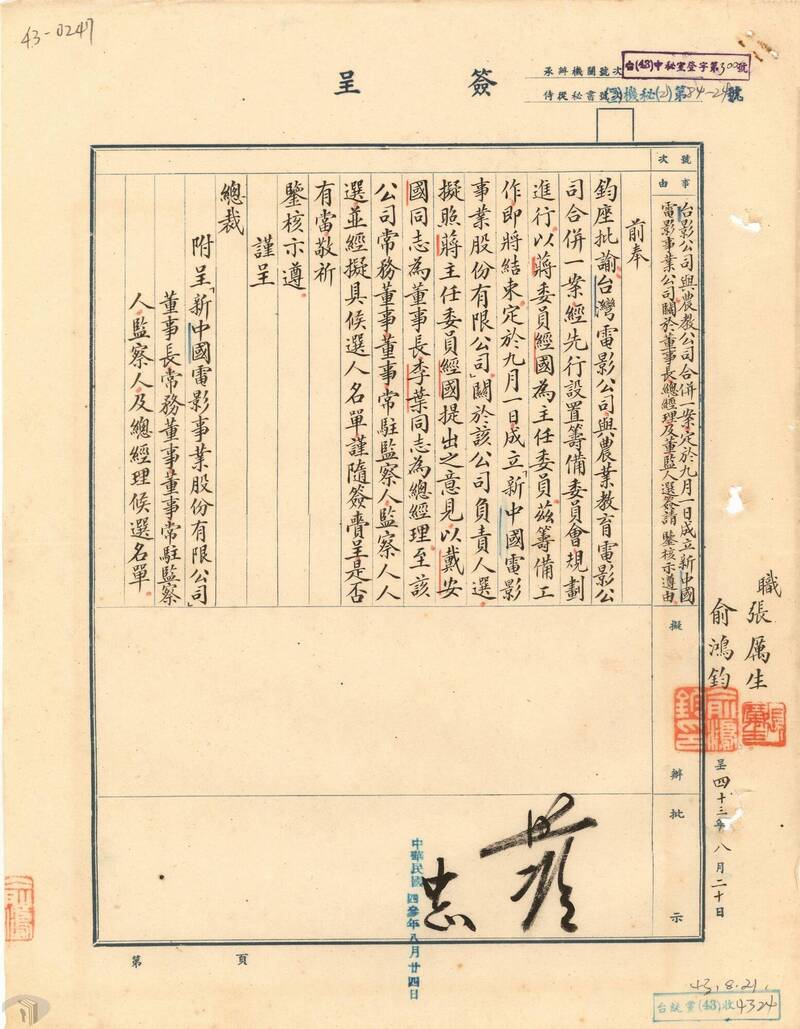 43-0247
簽呈
承辦機關號次
台(43)中秘室登字第300號
侍從秘書號次
機秘(2)第84-24號
號次
事由
台影公司與農教公司合併一案定於九月一日成立新中國
電影事業公司關於董事長總經理及董監人選簽請 鑒核示遵由
前奉
鈞座批諭台灣電影公司與農業教育電影公
司合併一案經先行設置籌備委員會規劃
進行以蔣委員經國為主任委員茲籌備工
作即將結束定於九月一日成立「新中國電影
事業股份有限公司」關於該公司負責人選
擬照蔣主任委員經國提出之意見以戴安
國同志為董事長李葉同志為總經理至該
公司常務董事董事常駐監察人監察人人
選並經擬具候選人名單謹隨簽賷呈是否
有當敬祈
鑒核示遵
謹呈
總裁
附呈「新中國電影事業股份有限公司」
董事長常務董事董事常駐監察
人監察人及總經理候選名單
職
張厲生
俞鴻鈞
呈四十三年八月二十日
擬辦
批示
中正
中華民國四參年八月廿四日
第 頁
43.8.21.
台統黨(43)收4324